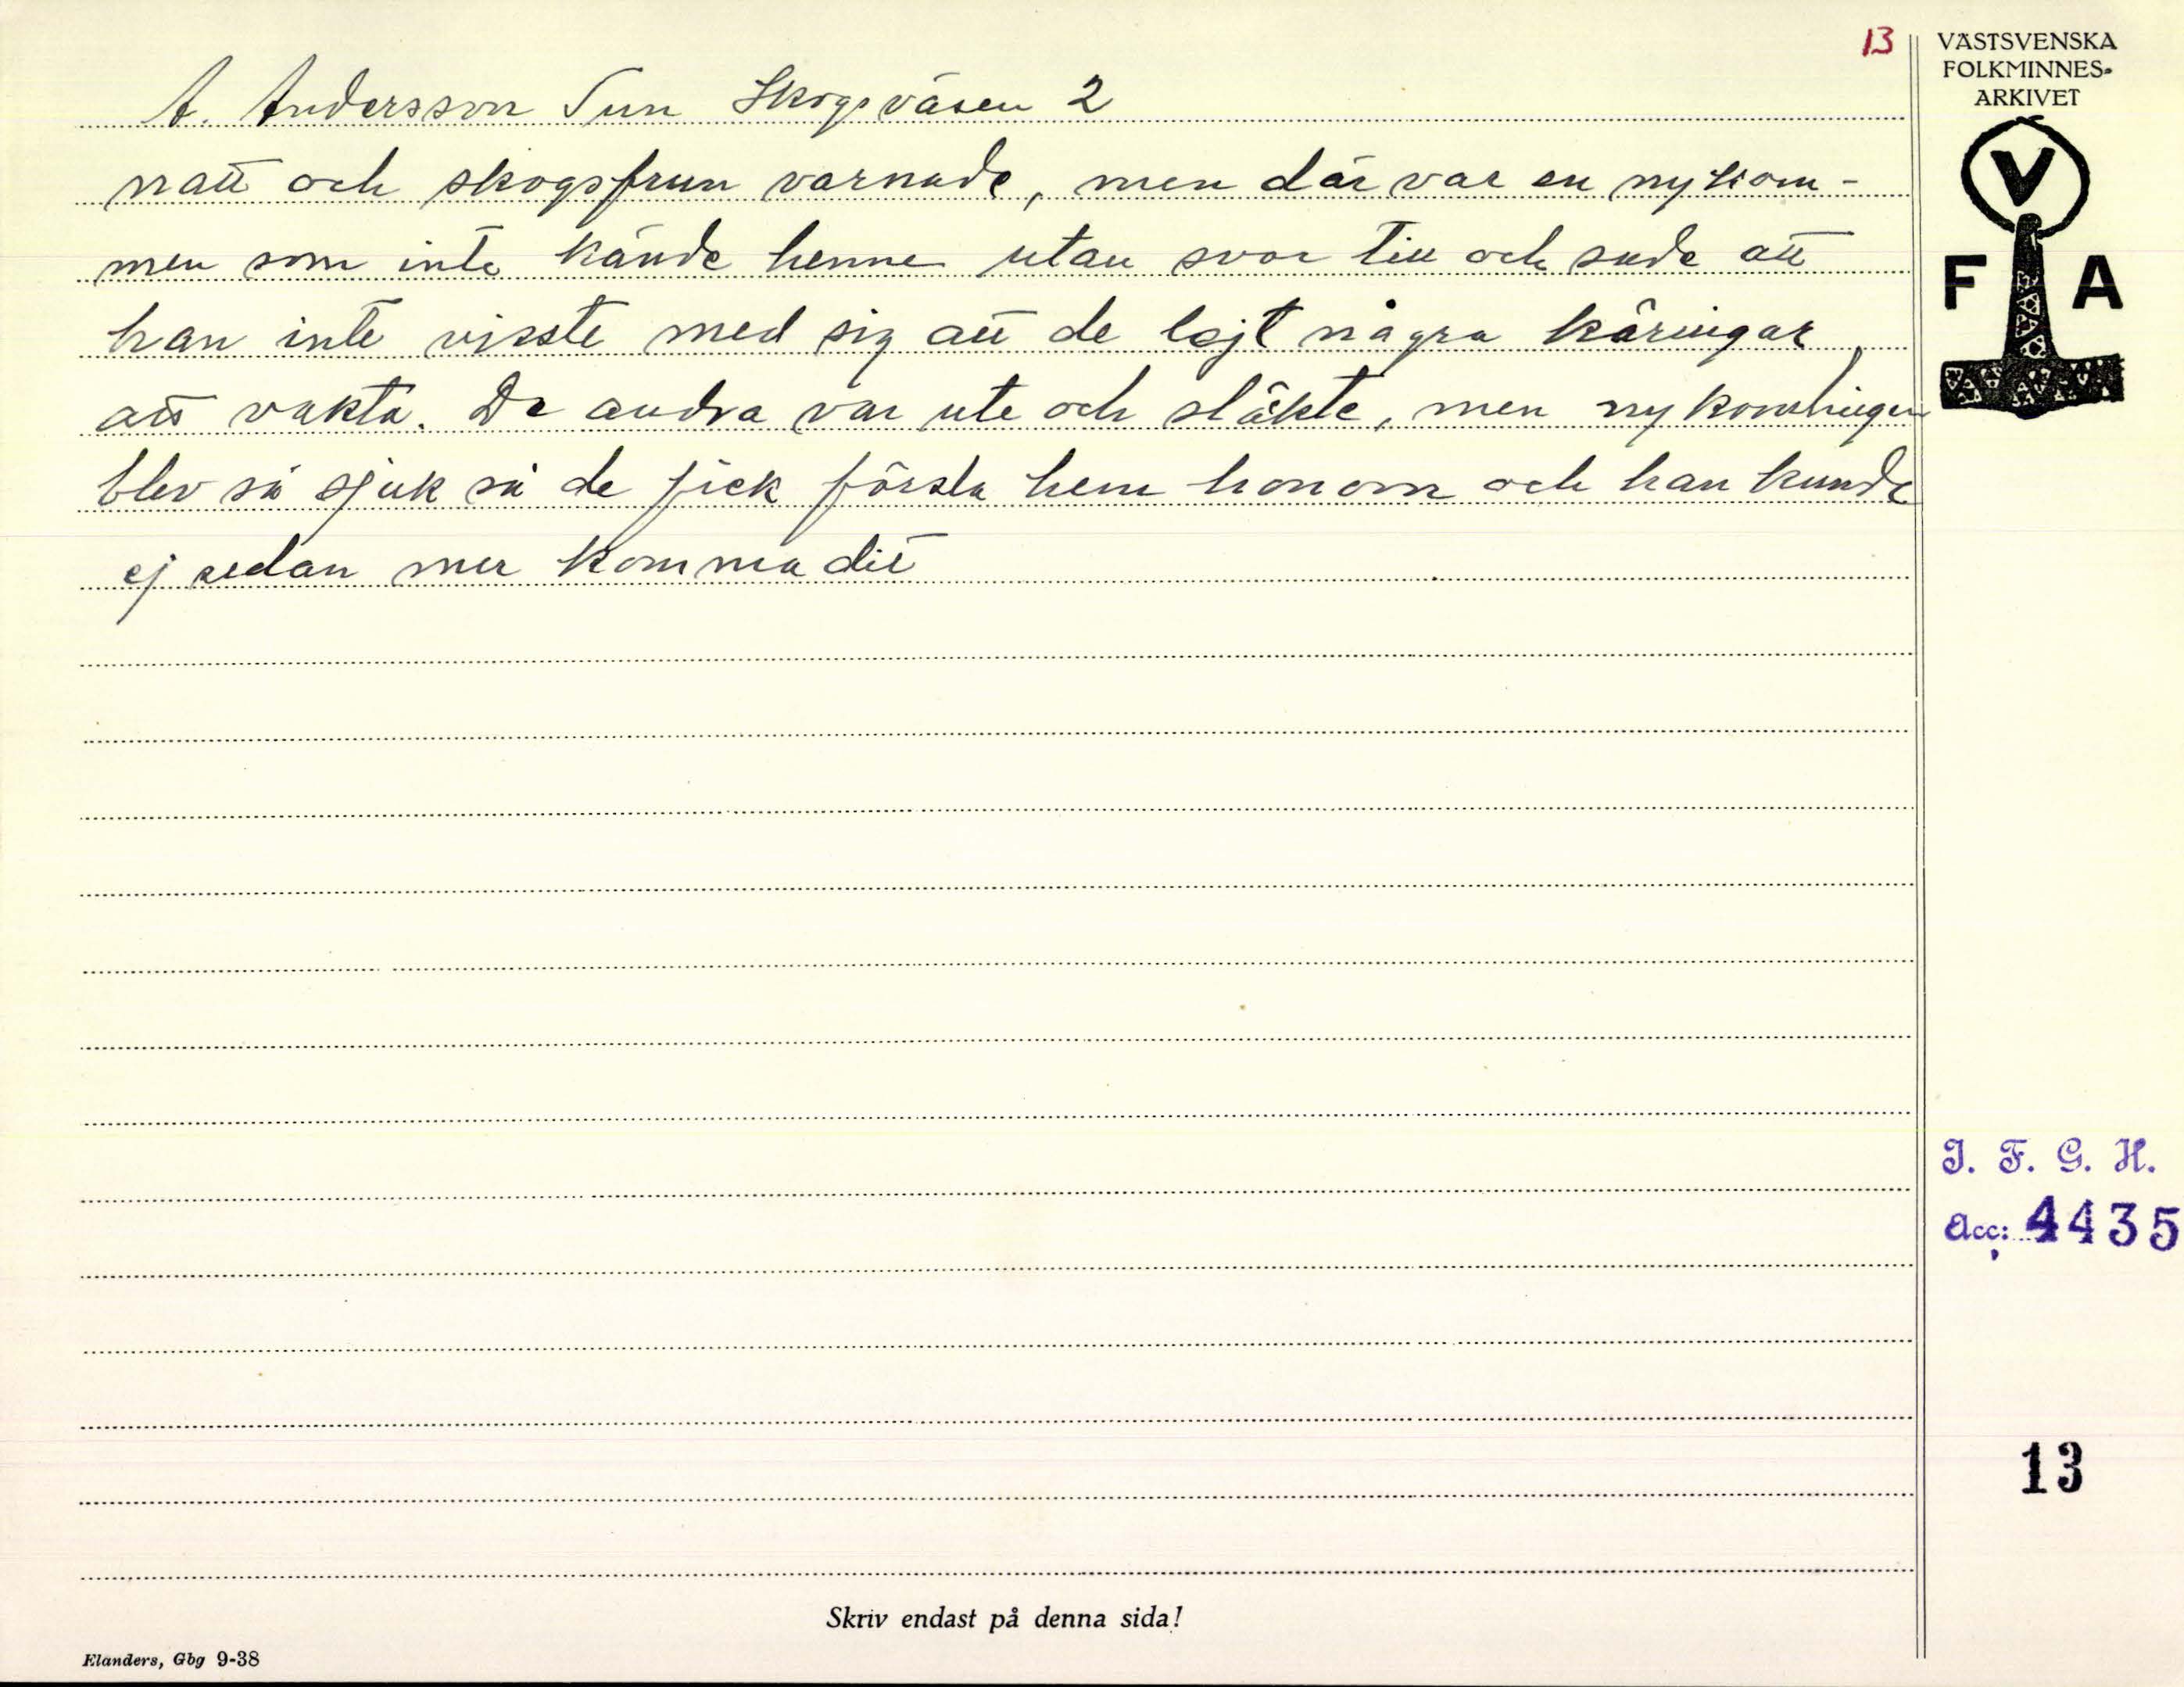 13
VÄSTSVENSKA
FOLKMINNES-
ARKIVET
V
F A
A. Andersson Tun Skogsväsen 2
natt och skogsfrun varnade, men där var en nykom-
men som inte kände henne utan svor till och sade att
han inte visste med sig att de lejt några käringar
att vakta. De andra var ute och släkte, men nykomlingen
blev så sjuk så de fick forsla hem honom och han kunde
ej sedan mer komma dit
I. F. G. H.
Acc: 4435
13
Skriv endast på denna sida!
Elanders, Gbg 9-38